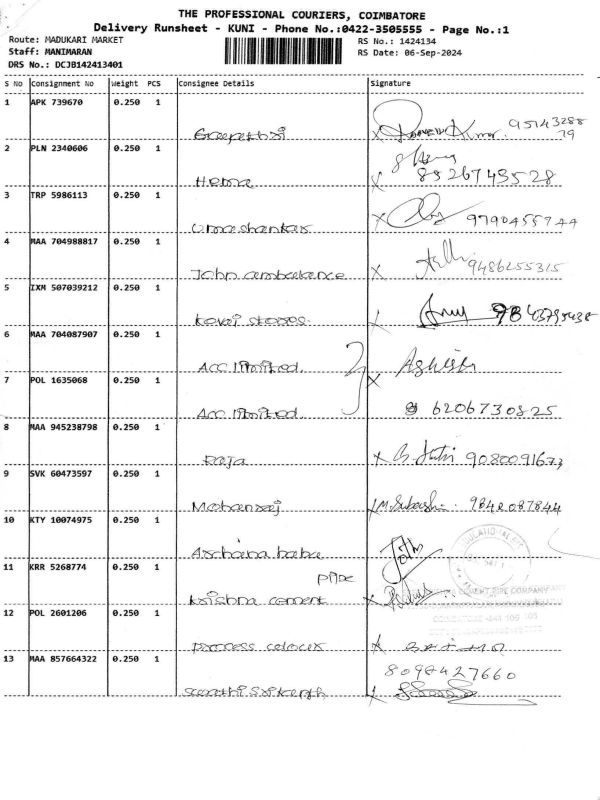 THE PROFESSIONAL COURIERS, COIMBATORE
Delivery Runsheet - KUNI - Phone No.:0422-3505555 - Page No.:1
Route: MADUKARI MARKET
RS No.: 1424134
Staff: MANIMARAN
RS Date: 06-Sep-2024
DRS No.: DCJB142413401
S No Consignment No Weight PCS Consignee Details Signature
1 APK 739670 0.250 1
95143288
79
2 PLN 2340606 0.250 1
Hema
8526743528
3 TRP 5986113 0.250 1
Umashankar 9790455744
4 MAA 704988817 0.250 1
John ambulance 9486255315
5 IXM 507039212 0.250 1
Kovai stores. 9843795438
6 MAA 704087907 0.250 1
ACC limited. Ashish
7 POL 1635068 0.250 1
ACC limited 6206730825
8 MAA 945238798 0.250 1
Raja 9080091673
9 SVK 60473597 0.250 1
Mohanraj 9842087844
10 KTY 10074975 0.250 1
Archana baba
11 KRR 5268774 0.250 1
pipe
Krishna cement
CEMENT PIPE COMPANY
12 POL 2601206 0.250 1
process
13 MAA 857664322 0.250 1
8098427660